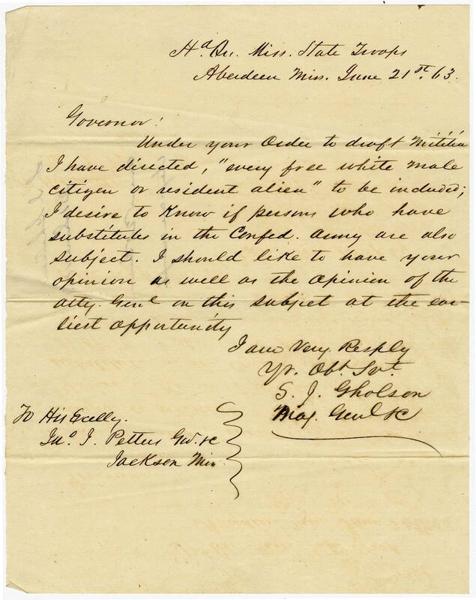 Hd Qu. Miss. State Troops
Aberdeen Miss. June 21st, 63.
Governor!
Under your Order to draft Militia
I have directed, "every free white male
citizen or resident alien" to be included;
I desire to Know if persons who have
substitutes in the Confed. army are also
subject. I should like to have your
opinion as well as the Opinion of the
atty. Genl on this subject at the ear
liest opportunity
I am Very Resply
Yr. Obt. Svt.
S. J. Gholson
Maj. Genl &c
To His Exclly.
Jno J. Pettus Gov. &c
Jackson Miss